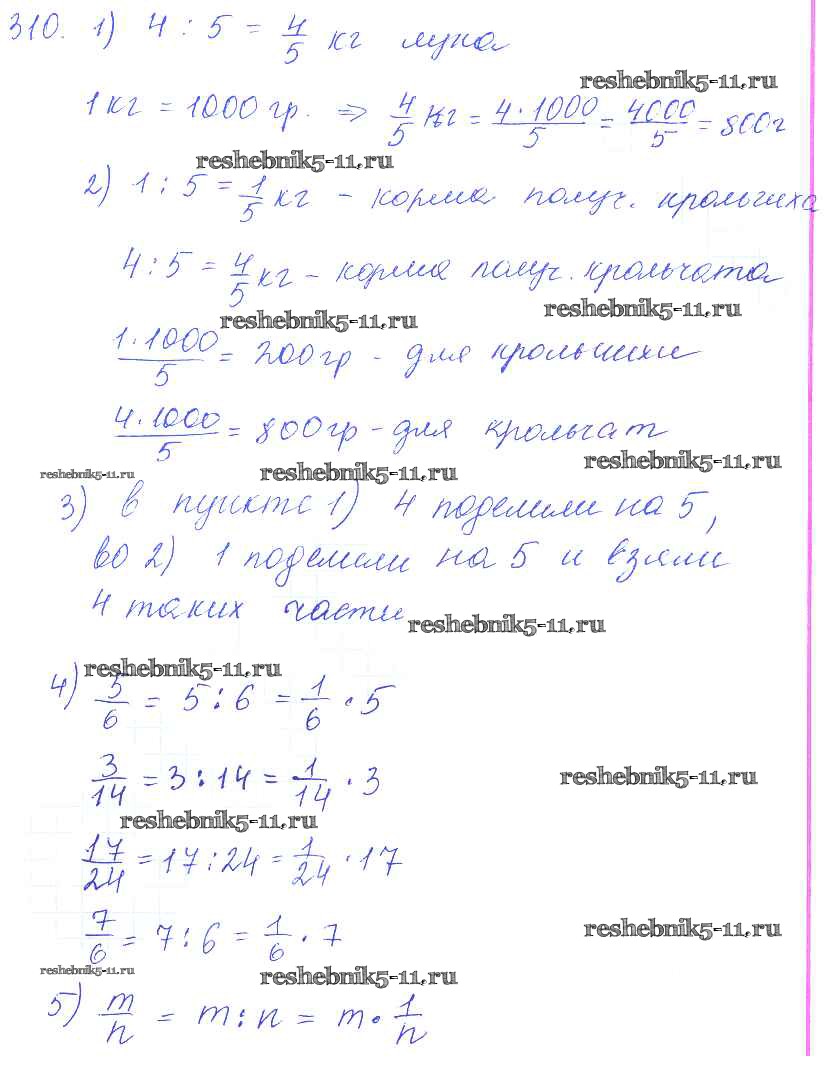 310. 1) 4 : 5 = 4/5 кг лука
reshebnik5-11.ru
1 кг = 1000 гр. ⇒ 4/5 кг = 4·1000/5 = 4000/5 = 800г
reshebnik5-11.ru
2) 1 : 5 = 1/5 кг - корма получ. крольчиха
4 : 5 = 4/5 кг - корма получ. крольчата
reshebnik5-11.ru
reshebnik5-11.ru
1·1000/5 = 200 гр - для крольчихи
4·1000/5 = 800 гр - для крольчат
reshebnik5-11.ru
reshebnik5-11.ru
reshebnik5-11.ru
3) в пункте 1) 4 поделили на 5,
во 2) 1 поделили на 5 и взяли
4 таких части
reshebnik5-11.ru
reshebnik5-11.ru
4) 5/6 = 5 : 6 = 1/6 · 5
3/14 = 3 : 14 = 1/14 · 3
reshebnik5-11.ru
reshebnik5-11.ru
17/24 = 17 : 24 = 1/24 · 17
7/6 = 7 : 6 = 1/6 · 7
reshebnik5-11.ru
reshebnik5-11.ru
reshebnik5-11.ru
5) m/n = m : n = m · 1/n